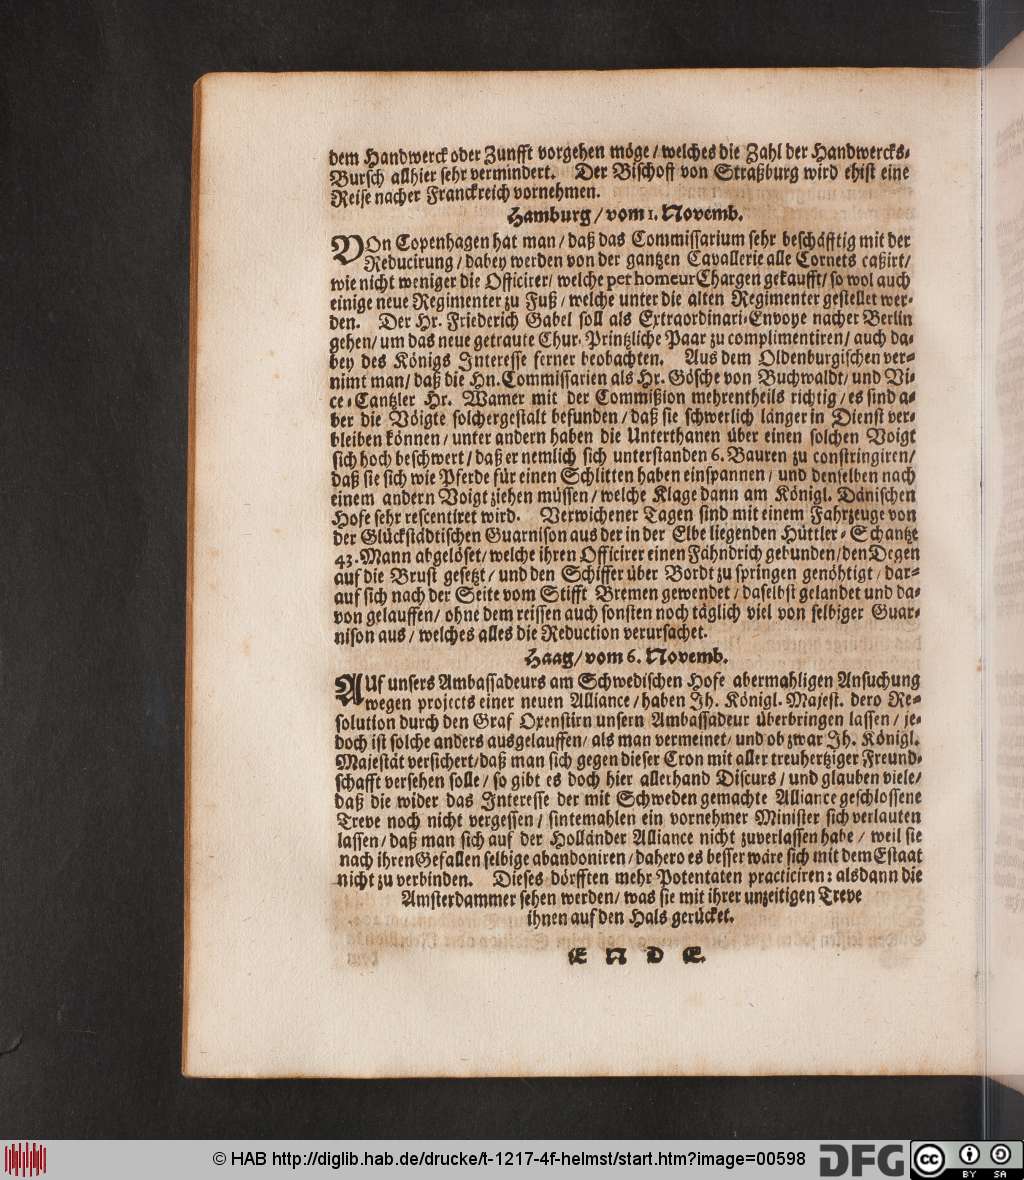 dem Handwerck oder Zunfft vorgehen möge / welches die Zahl der Handwercks-
Bursch allhier sehr vermindert. Der Bischoff von Straßburg wird ehist eine
Reise nacher Franckreich vornehmen.
Hamburg / vom 1. Novemb.
VOn Copenhagen hat man / daß das Commissarium sehr beschäfftig mit der
Reducirung / dabey werden von der gantzen Cavallerie alle Cornets caßirt /
wie nicht weniger die Officirer / welche per homeur Chargen gekaufft / so wol auch
einige neue Regimenter zu Fuß / welche unter die alten Regimenter gestellet wer-
den. Der Hr. Friederich Gabel soll als Extraordinari-Envoye nacher Berlin
gehen / um das neue getraute Chur-Printzliche Paar zu complimentiren / auch da-
bey des Königs Interesse ferner beobachten. Aus dem Oldenburgischen ver-
nimt man / daß die Hn. Commissarien als Hr. Gösche von Buchwaldt / und Vi-
ce-Cantzler Hr. Wamer mit der Commißion mehrentheils richtig / es sind a-
ber die Vöigte solchergestalt befunden / daß sie schwerlich länger in Dienst ver-
bleiben können / unter andern haben die Unterthanen über einen solchen Voigt
sich hoch beschwert / daß er nemlich sich unterstanden 6. Bauren zu constringiren /
daß sie sich wie Pferde für einen Schlitten haben einspannen / und denselben nach
einem andern Voigt ziehen müssen / welche Klage dann am Königl. Dänischen
Hofe sehr rescentiret wird. Verwichener Tagen sind mit einem Fahrzeuge von
der Glückstädtischen Guarnison aus der in der Elbe liegenden Hüttler-Schantze
43. Mann abgelöset / welche ihren Officirer einen Fähndrich gebunden / den Degen
auf die Brust gesetzt / und den Schiffer über Bordt zu springen genöhtigt / dar-
auf sich nach der Seite vom Stifft Bremen gewendet / daselbst gelandet und da-
von gelauffen / ohne dem reissen auch sonsten noch täglich viel von selbiger Guar-
nison aus / welches alles die Reduction verursachet.
Haag / vom 6. Novemb.
AUf unsers Ambassadeurs am Schwedischen Hofe abermahligen Ansuchung
wegen projects einer neuen Alliance / haben Ih. Königl. Majest. dero Re-
solution durch den Graf Oxenstirn unsern Ambassadeur überbringen lassen / je-
doch ist solche anders ausgelauffen / als man vermeinet / und ob zwar Ih. Königl.
Majestät versichert / daß man sich gegen dieser Cron mit aller treuhertziger Freund-
schafft versehen solle / so gibt es doch hier allerhand Discurs / und glauben viele /
daß die wider das Interesse der mit Schweden gemachte Alliance geschlossene
Treve noch nicht vergessen / sintemahlen ein vornehmer Minister sich verlauten
lassen / daß man sich auf der Holländer Alliance nicht zuverlassen habe / weil sie
nach ihren Gefallen selbige abandoniren / dahero es besser wäre sich mit dem Estaat
nicht zu verbinden. Dieses dörfften mehr Potentaten practiciren: alsdann die
Amsterdammer sehen werden / was sie mit ihrer unzeitigen Treve
ihnen auf den Hals gerücket.
E N D E.
© HAB http://diglib.hab.de/drucke/t-1217-4f-helmst/start.htm?image=00598
DFG
cc
BY SA